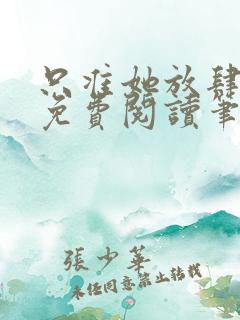 只准她放肆
免費閱讀筆
張少華
未經同意禁止轉載